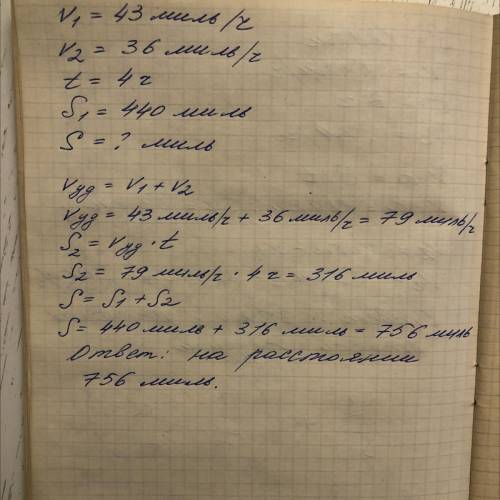 V₁ = 43 миль/ч
V₂ = 36 миль/ч
t = 4 ч
S₁ = 440 миль
S = ? миль
Vуд = V₁ + V₂
Vуд = 43 миль/ч + 36 миль/ч = 79 миль/ч
S₂ = Vуд · t
S₂ = 79 миль/ч · 4 ч = 316 миль
S = S₁ + S₂
S = 440 миль + 316 миль = 756 миль
Ответ: на расстоянии
756 миль.